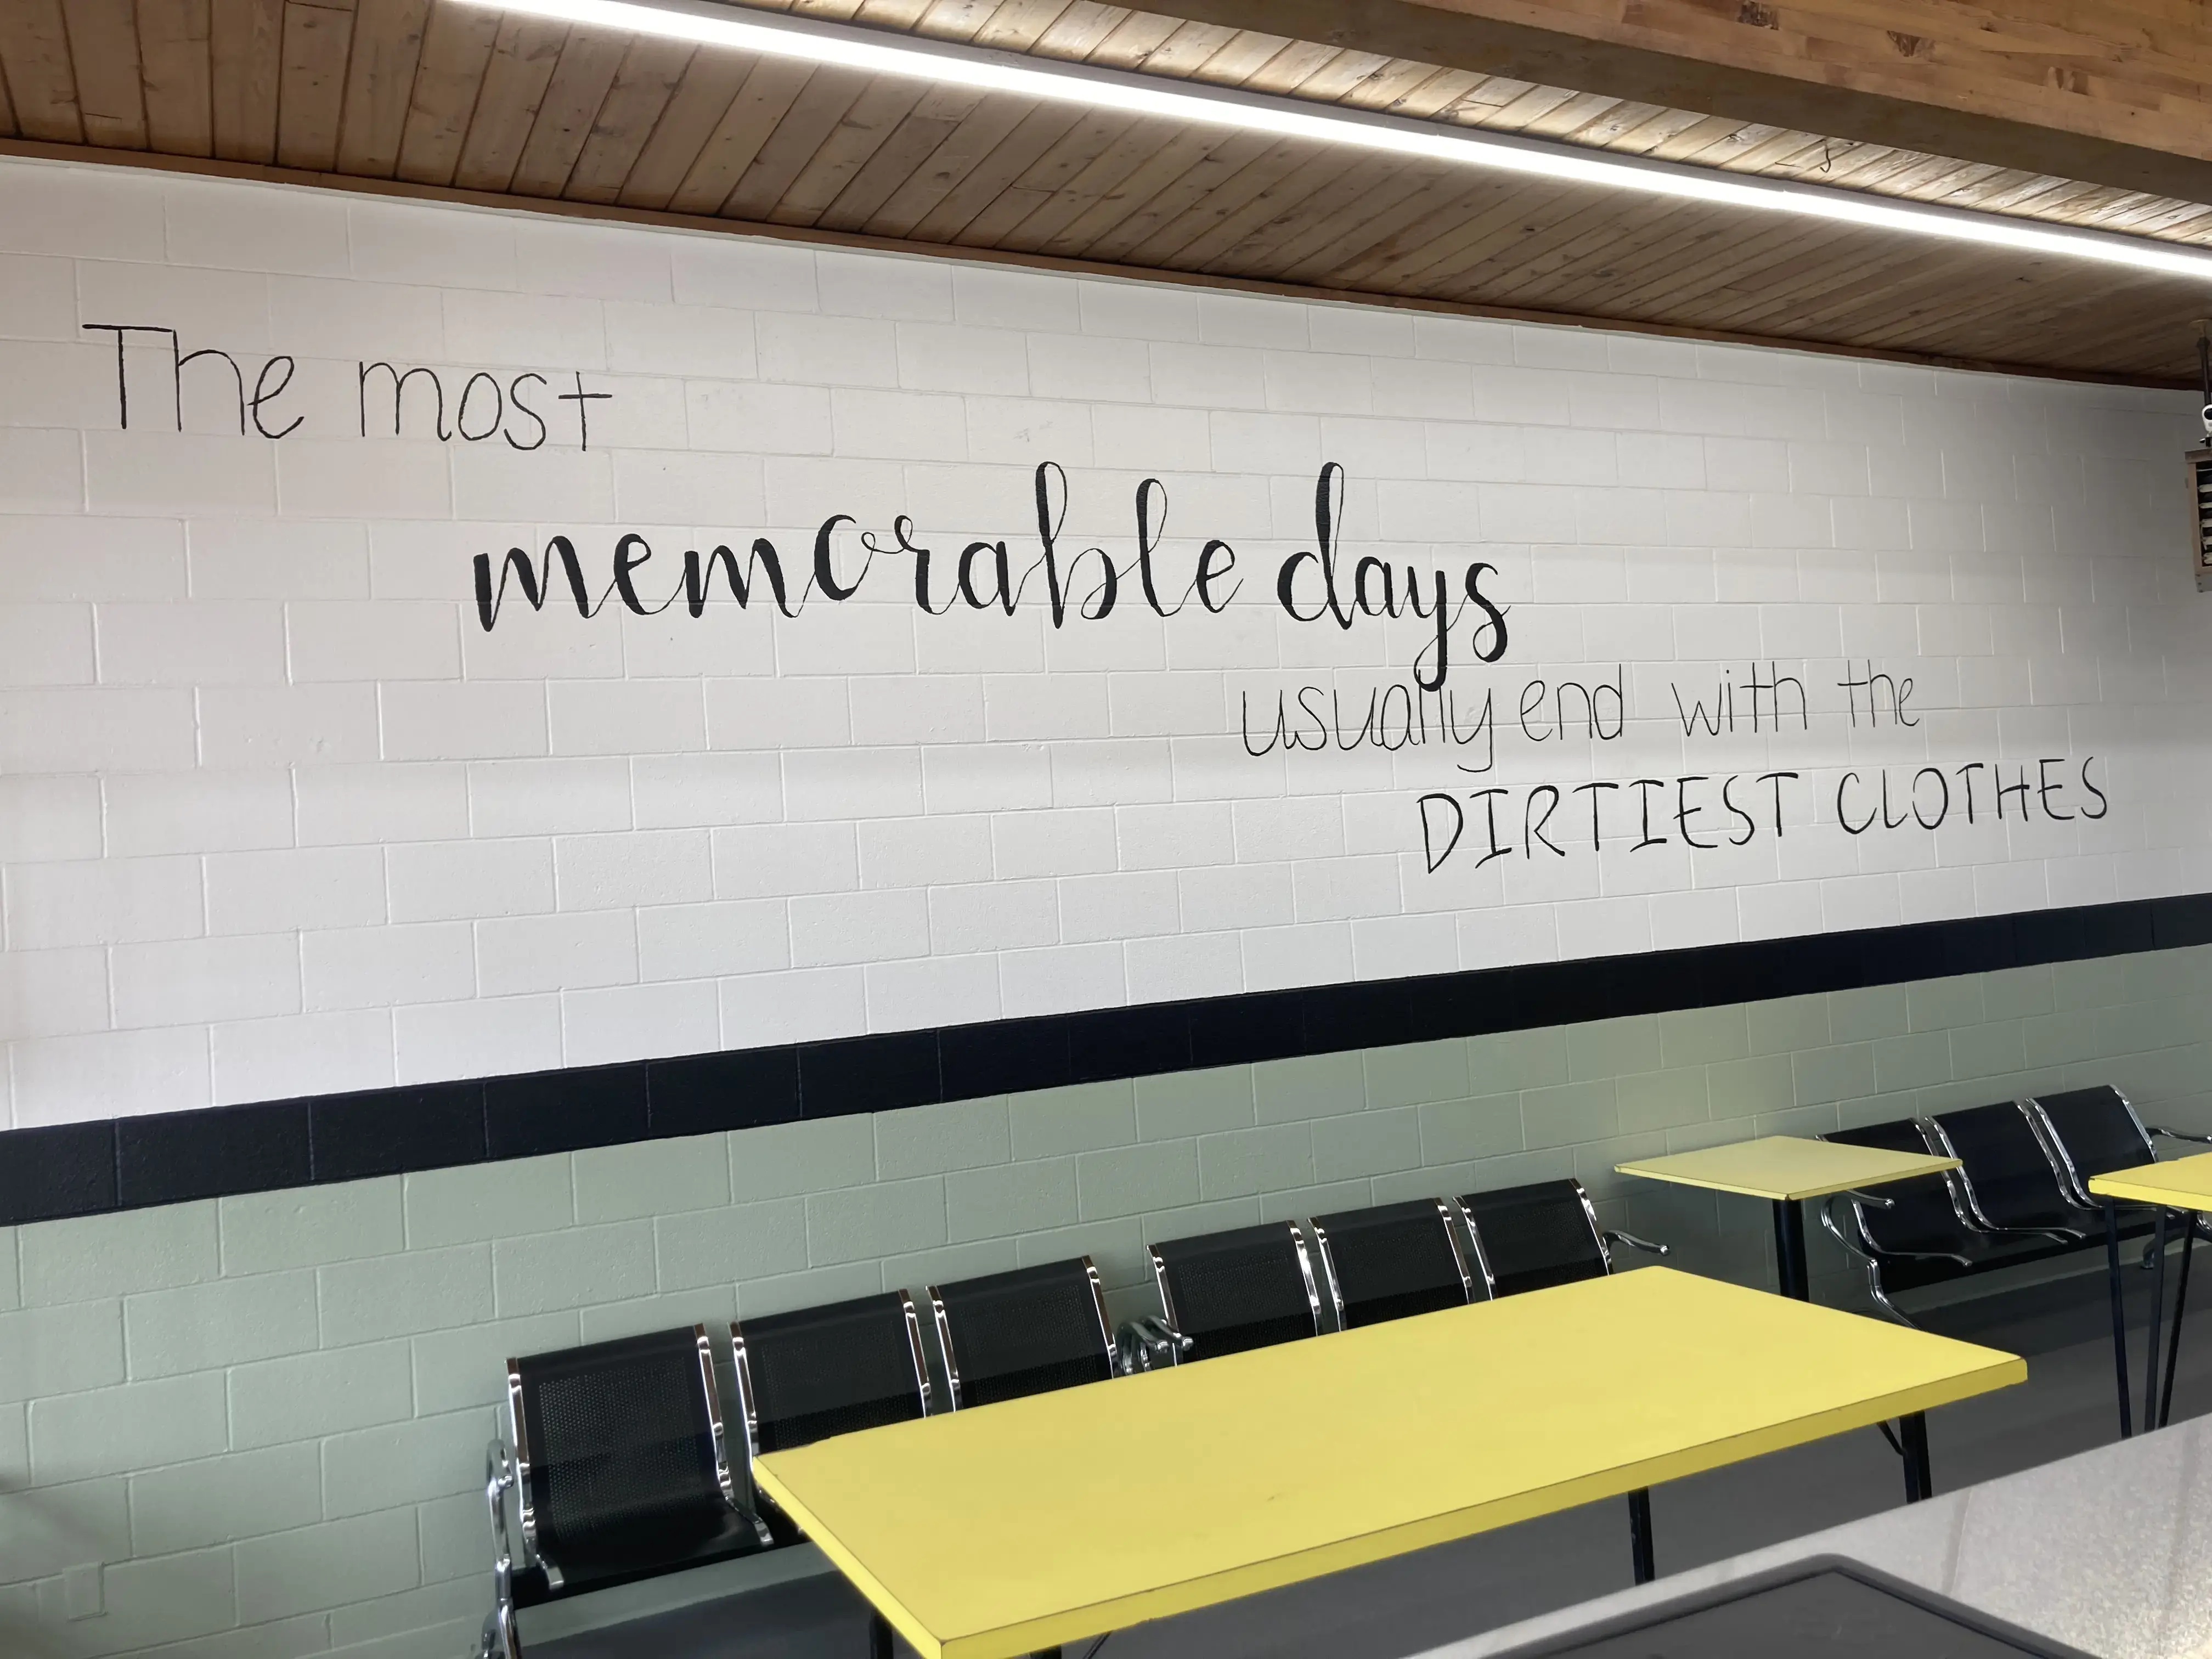 The most
memorable days
usually end with the
DIRTIEST CLOTHES